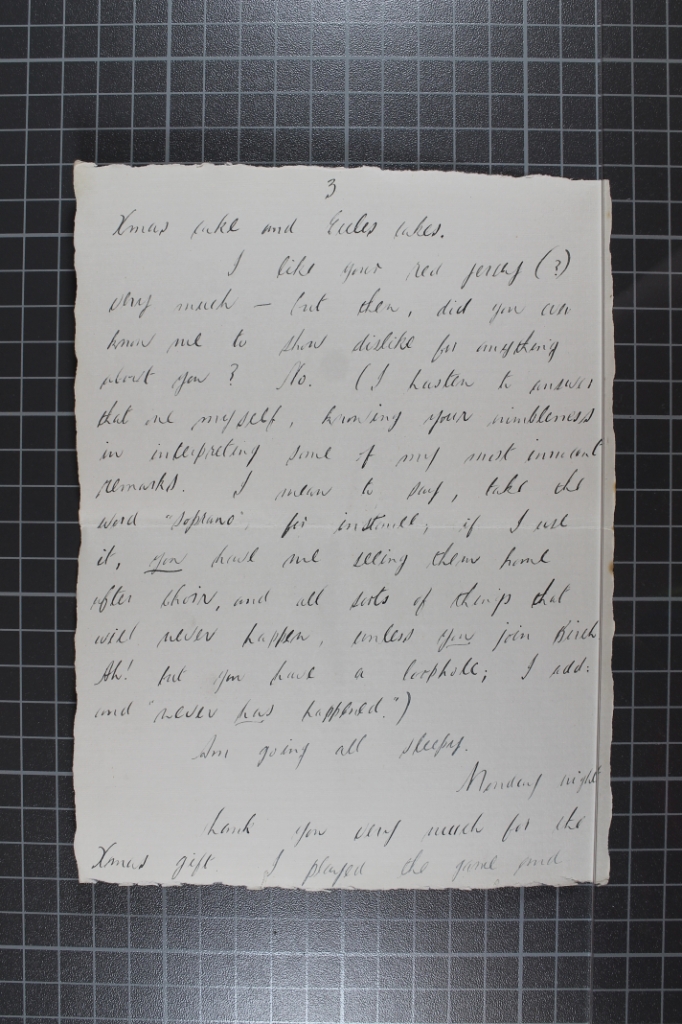 3
Xmas cake and Eccles cakes.
I like your red jersey (?)
very much — but then, did you ever
know me to show dislike for anything
about you? No. (I hasten to answer
that one myself, knowing your nimbleness
in interpreting some of my most innocent
remarks. I mean to say, take the
word "soprano", for instance; if I use
it, you have me seeing them home
after choir, and all sorts of things that
will never happen, unless you join Birch
Ah! but you have a loophole; I add:
and "never has happened.")
Am going all sleepy.
Monday night
Thank you very much for the
Xmas gift. I played the game and